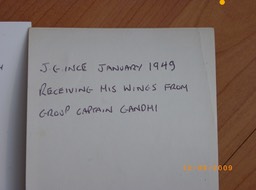 J.G. INCE JANUARY 1949
RECEIVING HIS WINGS FROM
GROUP CAPTAIN GANDHI